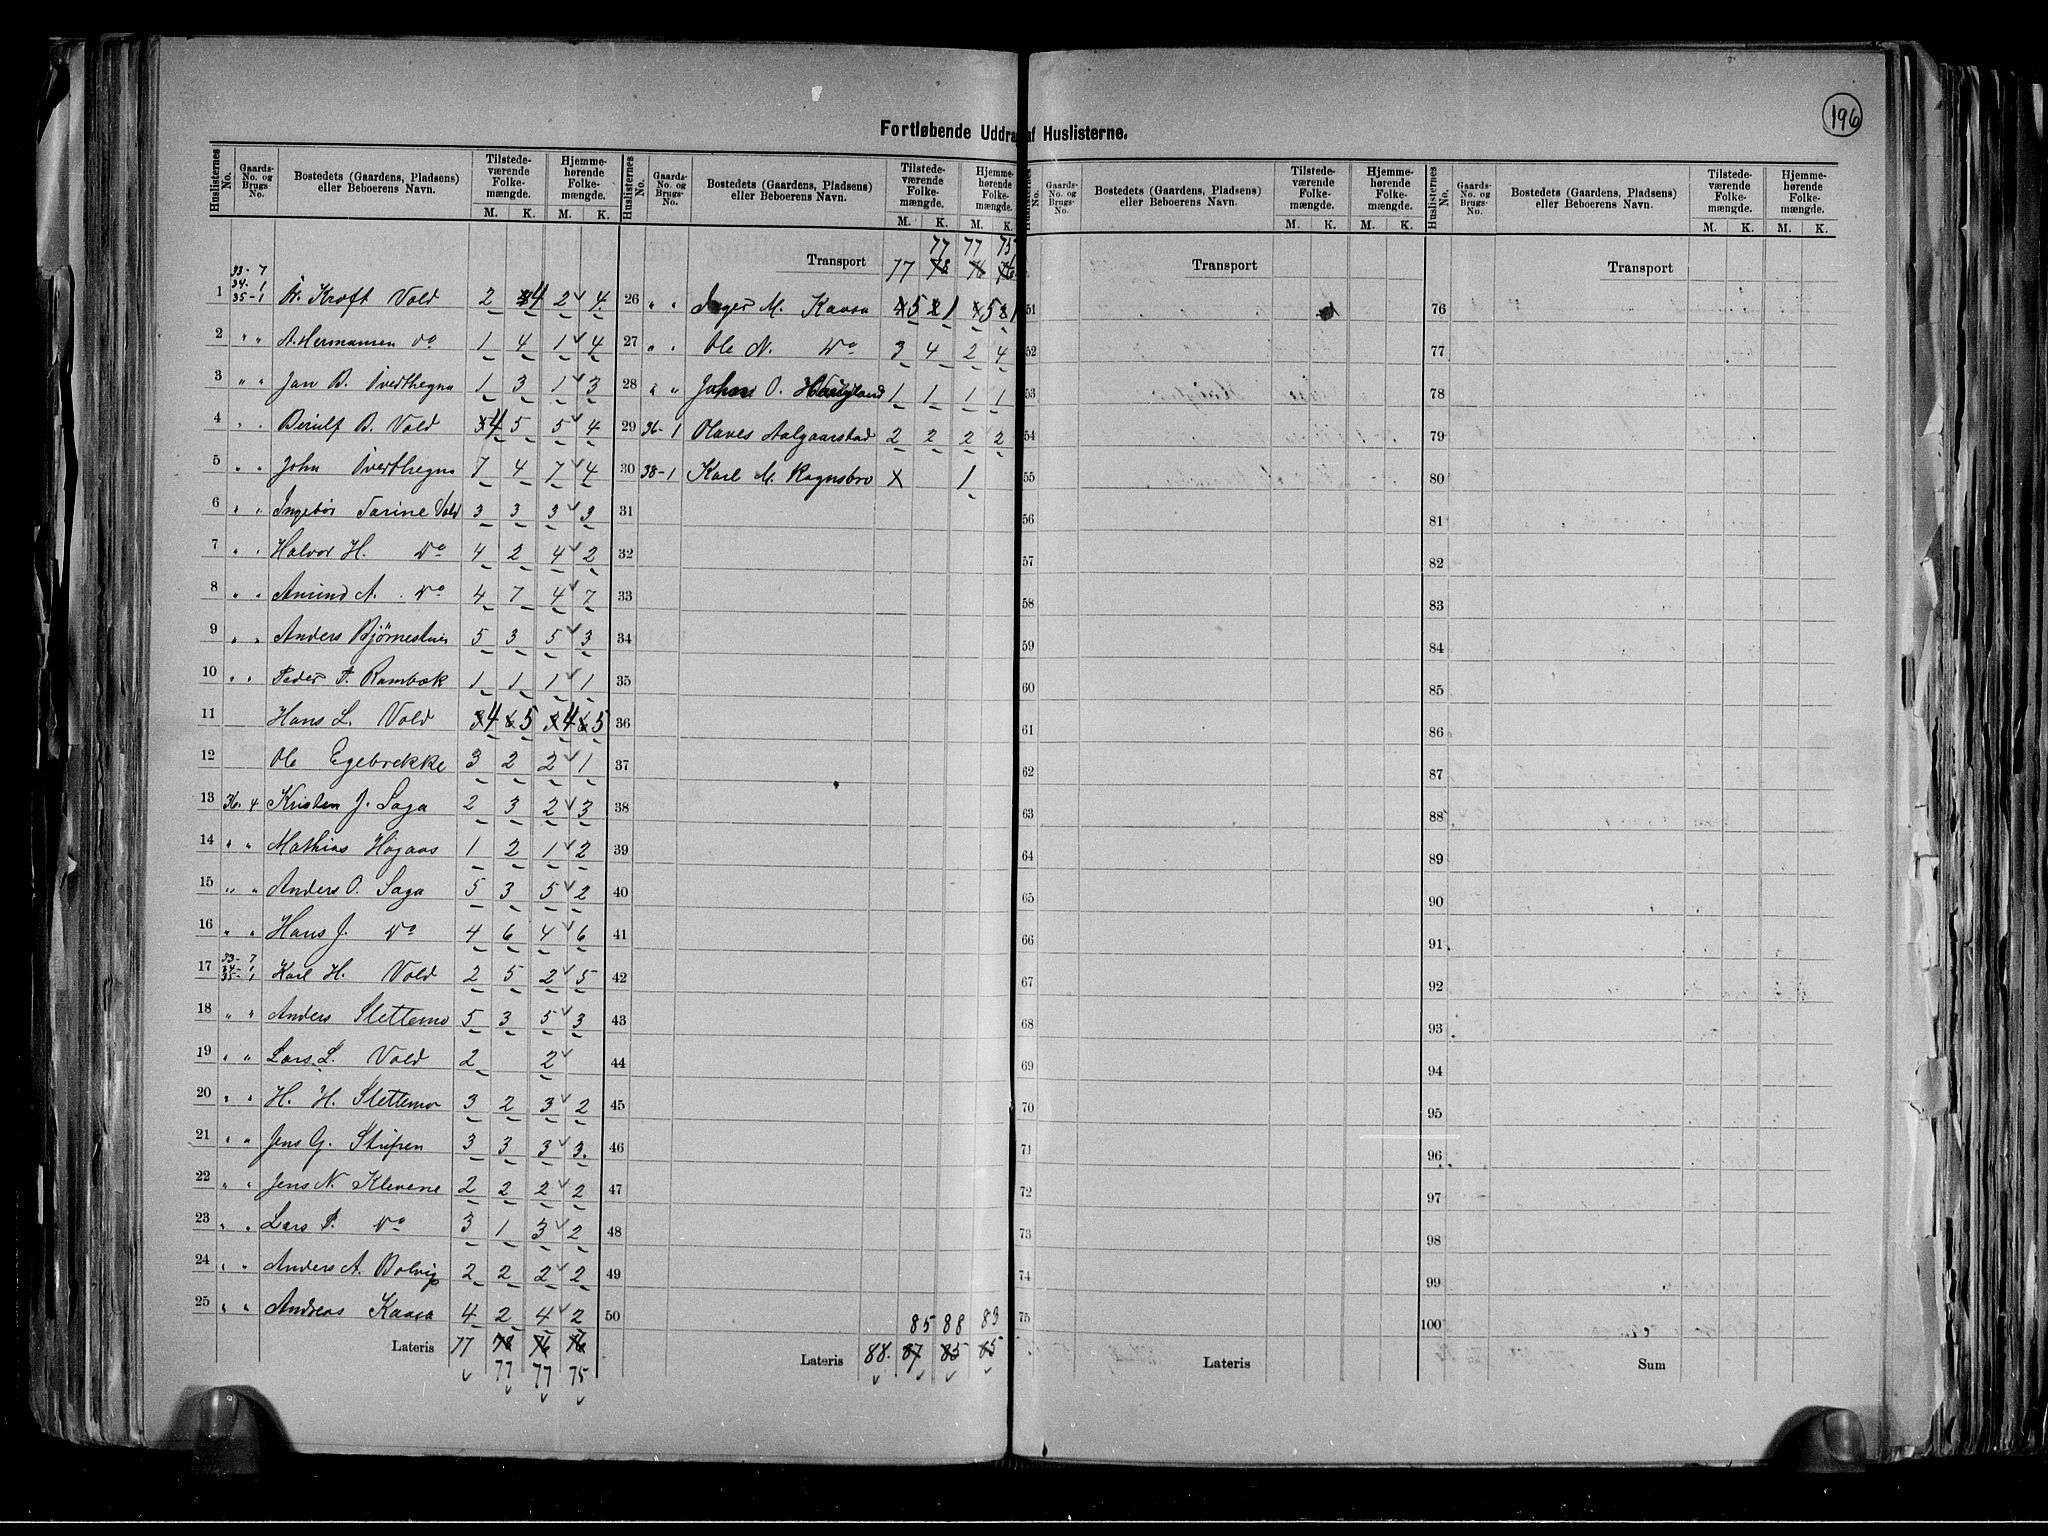 196
Fortløbende Uddra af Huslisterne.
Huslisternes No. Gaards- No. og Brugs- No. Bostedets (Gaardens, Pladsens) eller Beboerens Navn. Tilstede- værende Folke- mængde. M. K. Hjemme- hørende Folke- mængde. M. K.
33-7
34-1
1 35-1 Kroft Vold 2 4 2 4
2 " " A. Hermansen Do 1 4 1 4
3 " " Jan B. Overthegna 1 3 1 3
4 " " Berulf B. Vold 4 5 5 4
5 " " John Overthegna 7 4 7 4
6 " " Ingebór Tarine Vold 3 3 3 3
7 " " Halvor H. Do 4 2 4 2
8 " " Amund A. Do 4 7 4 7
9 " " Anders Bjørnestuen 5 3 5 3
10 " " Peder P. Rambæk 1 1 1 1
11 Hans L. Vold 4 5 4 5
12 Ole Egebrekke 3 2 2 1
13 36-4 Kristen J. Saga 2 3 2 3
14 " " Mathias Högaas 1 2 1 2
15 " " Anders O. Saga 5 3 5 2
16 " " Hans J. Do 4 6 4 6
33-7
34-1
17 35-1 Karl H. Vold 2 5 2 5
18 " " Anders Slettemo 5 3 5 3
19 " " Lars L. Vold 2 2
20 " " H. H. Slettemo 3 2 3 2
21 " " Jens G. 3 3 3 3
22 " " Jens N. Klevene 2 2 2 2
23 " " Lars P. Do 3 1 3 2
24 " " Anders A. Bolvig 2 2 2 2
25 " " Andreas Kaasa 4 2 4 2
Lateris 77 78 76 76
77 77 75
Huslisternes No. Gaards- No. og Brugs- No. Bostedets (Gaardens, Pladsens) eller Beboerens Navn. Tilstede- værende Folke- mængde. M. K. Hjemme- hørende Folke- mængde. M. K.
77 77 75
Transport 77 78 76 76
26 " " Inger M. Kaasa 5 1 5 1
27 " " Ole N. Do 3 4 2 4
28 " " Johan O. 1 1 1 1
29 36-1 Olaves Aalgaarstad 2 2 2 2
30 38-1 Karl M. Rognsbro x 1
31
32
33
34
35
36
37
38
39
40
41
42
43
44
45
46
47
48
49
50
85 88 83
Lateris 88. 87 85 85
No. Gaards- No. og Brugs- No. Bostedets (Gaardens, Pladsens) eller Beboerens Navn. Tilstede- værende Folke- mængde. M. K. Hjemme- hørende Folke- mængde. M. K.
Transport
51
52
53
54
55
56
57
58
59
60
61
62
63
64
65
66
67
68
69
70
71
72
73
74
75
Lateris
Huslisternes No. Gaards- No. og Brugs- No. Bostedets (Gaardens, Pladsens) eller Beboerens Navn. Tilstede- værende Folke- mængde. M. K. Hjemme- hørende Folke- mængde. M. K.
Transport
76
77
78
79
80
81
82
83
84
85
86
87
88
89
90
91
92
93
94
95
96
97
98
99
100
Sum